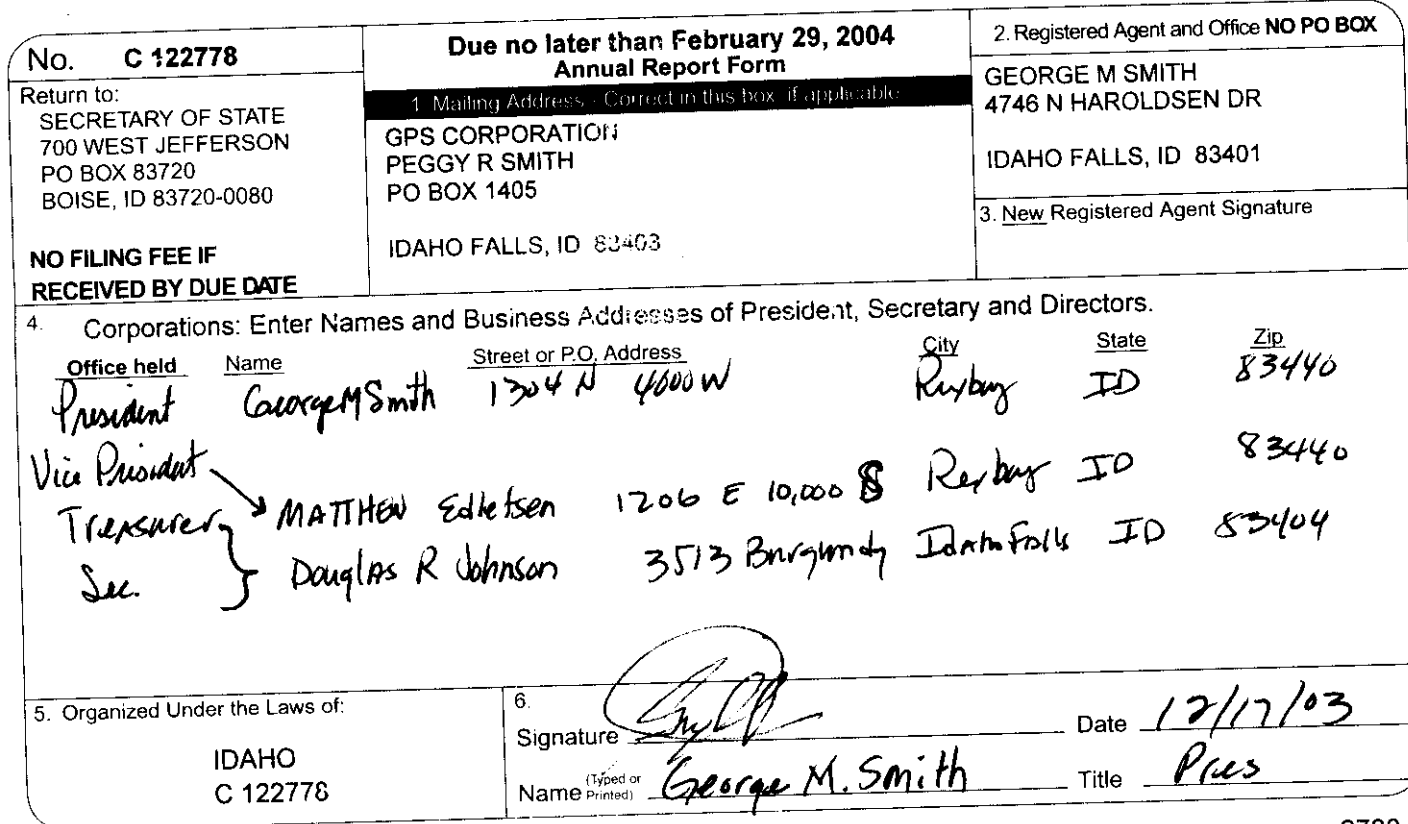 No. C 122778
Return to:
SECRETARY OF STATE
700 WEST JEFFERSON
PO BOX 83720
BOISE, ID 83720-0080
NO FILING FEE IF
RECEIVED BY DUE DATE
Due no later than February 29, 2004
Annual Report Form
1. Mailing Address - Correct in this box, if applicable
GPS CORPORATION
PEGGY R SMITH
PO BOX 1405
IDAHO FALLS, ID 83403
2. Registered Agent and Office NO PO BOX
GEORGE M SMITH
4746 N HAROLDSEN DR
IDAHO FALLS, ID 83401
3. New Registered Agent Signature
4. Corporations: Enter Names and Business Addresses of President, Secretary and Directors.
Office held Name Street or P.O. Address City State Zip
President George M Smith 1304 N 4600 W Rexburg ID 83440
Vice President
Treasurer MATTHEW 1206 E 10,000 S Rexburg ID 83440
Sec. Douglas R Johnson 3513 Burgundy Idaho Falls ID 83404
5. Organized Under the Laws of:
IDAHO
C 122778
6.
Signature Date 12/17/03
Name (Typed or Printed) George M. Smith Title Pres